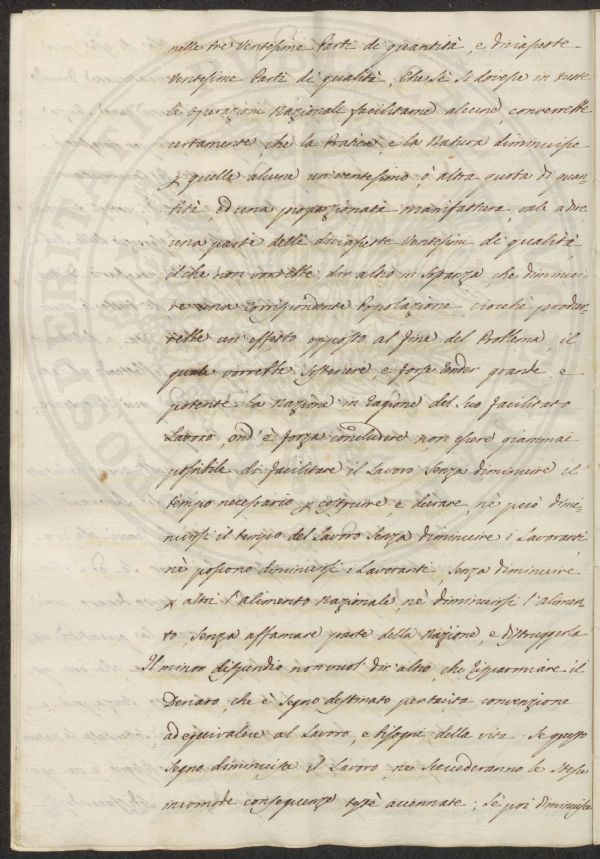 nelle tre ventesime Parti di quantità, e dieciasette
ventesime Parti di qualità, Che se si dovesse in tutte
le operazioni Nazionali facilitarne alcune, converrebbe
certamente, che la Pratica, e la Natura diminuisse
quelle alcune un ventesimo, ò altra quota di quan-
tità, ed una proporzionata manifattura, vale a dire
una parte delle dieciasette Ventesime di qualità,
il che non vorrebbe dir altro in Sostanza, che diminui-
re una Corrispondente Popolazione, ciocchè produr-
rebbe un' effetto opposto al fine del Problema, il
quale vorrebbe Sostenere, e forse render grande, e
potente la Nazione in ragione del Suo facilitato
Lavoro, ond' è forza concludere non essere giammai
possibile di facilitare il Lavoro Senza diminuire il
tempo necessario p costruire, e durare, nè può dimi-
nuirsi il tempo del Lavoro Senza diminuire i Lavoranti
nè possono diminuirsi i Lavoranti, Senza diminuire
p altri l'alimento Nazionale, nè diminuirsi l'alimen-
to, Senza affamare parte della Nazione, e distruggerla
Il minor dispendio non vuol dir altro, che risparmiare il
Denaro, che è Segno destinato per tacita convenzione
ad equivalere al Lavoro, e bisogni della vita. Se questo
Segno diminuisce il Lavoro, ne Succederanno le Stesse
incomode conseguenze testè accennate; Se poi diminuisce